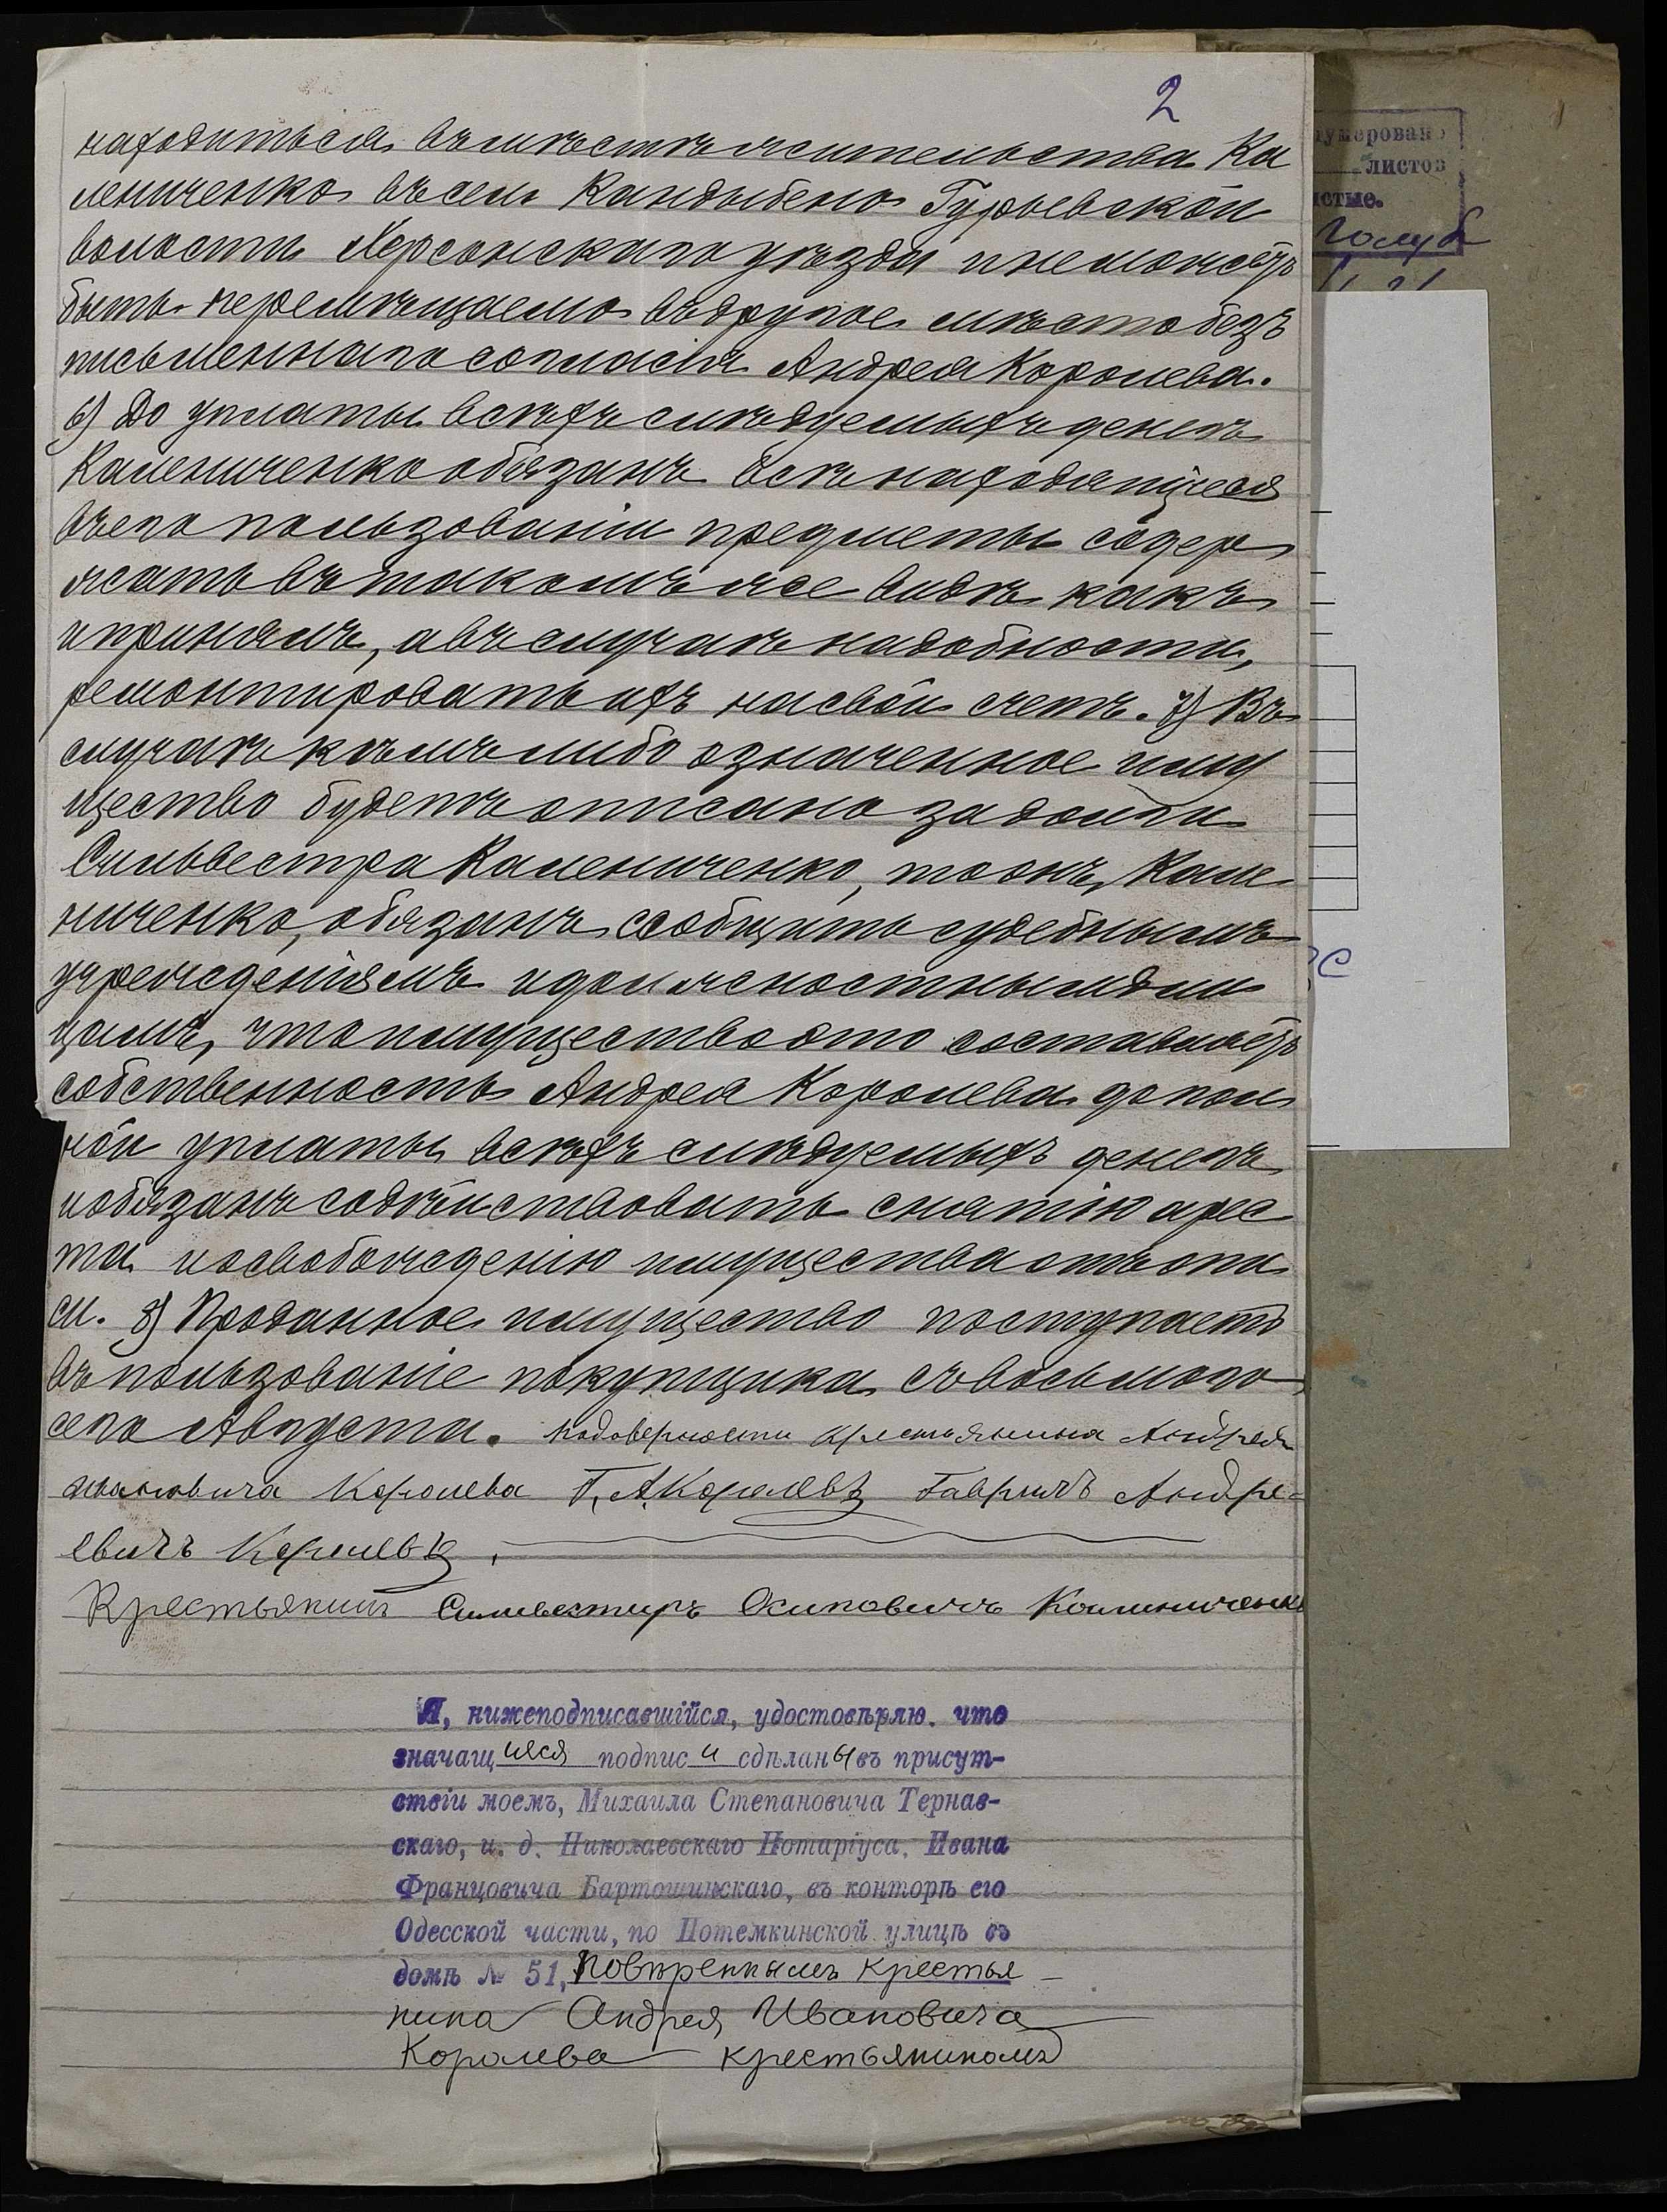 2
находиться въ мѣстѣ жительства Ка
лениченко въ селѣ Кандыбено Гурьевской
волости Херсонскаго уѣзда и не можетъ
быть перемѣщаемо въ другое мѣсто безъ
письменнаго согласія Андрея Королева.
6) До уплаты всѣхъ слѣдуемыхъ денегъ
Калениченко обязанъ всѣ находящіеся
въ его пользованіи предметы содер
жать въ такомъ же видѣ какъ
и принялъ, а въ случаѣ надобности,
ремонтировать ихъ на свой счетъ. 7) Въ
случаѣ кѣмъ либо означенное иму
щество будетъ описано за долги
Сильвестра Калениченко, то онъ, Кале
ниченко, обязанъ сообщить судебнымъ
учрежденіямъ и должностнымъ ли
цамъ, что имущество это составляетъ
собственность Андрея Королева до пол
ной уплаты всѣхъ слѣдуемыхъ денегъ
и обязанъ содѣйствовать снятію арес
та и освобожденію имущества отъ опи
си. 8) Проданное имущество поступаетъ
въ пользованіе покупщика съ восьмого
сего Августа. по доверености крестьянина Андрея
Ивановича Королева Г. А. Королевъ Гаврилъ Андре=
евичъ Королевъ.
Крестьянинъ Силивестиръ Осиповичъ Колиниченко
Я, нижеподписавшійся, удостовѣряю, что
значащіяся подписи сдѣланы въ присут-
ствіи моемъ, Михаила Степановича Тернав-
скаго, и. д. Николаевскаго Нотаріуса, Ивана
Францовича Бартошинскаго, въ конторѣ его
Одесской части, по Потемкинской улицѣ въ
домѣ № 51, Повѣреннымъ крестья-
нина Андрея Ивановича
Королева крестьяниномъ
листов